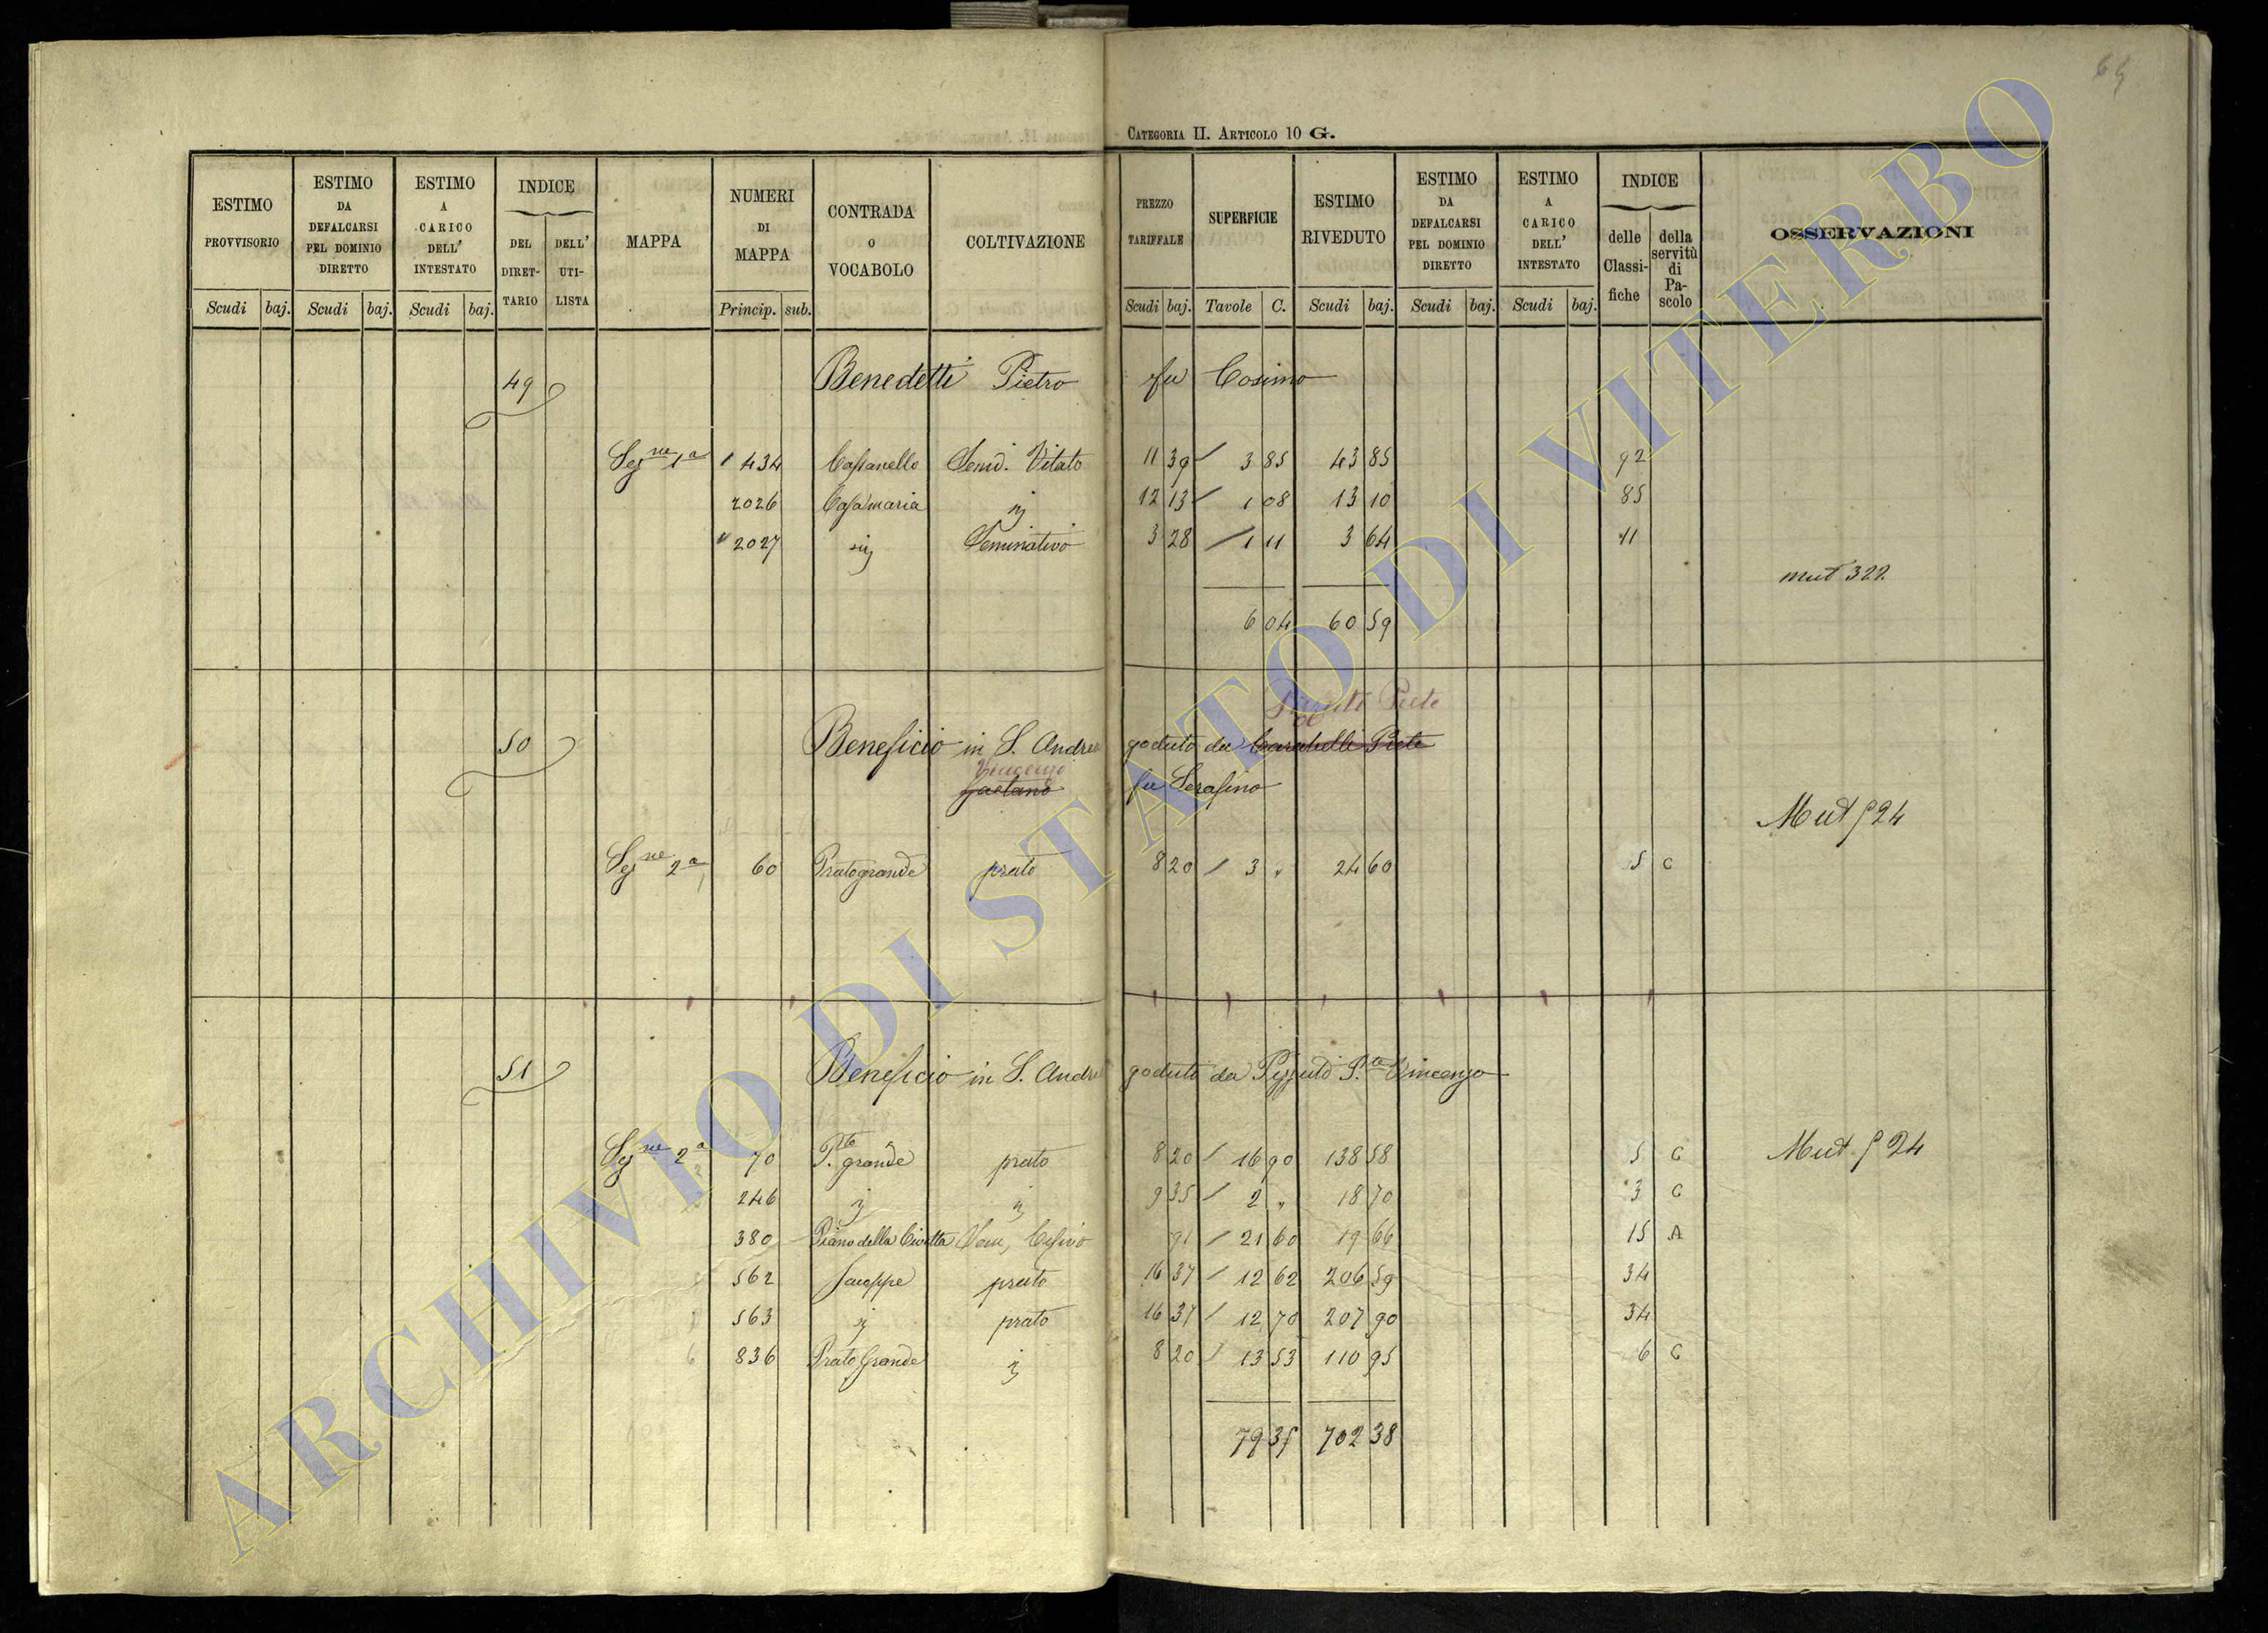 69
CATEGORIA II. ARTICOLO 10 G.
ESTIMO PROVVISORIO Scudi baj. ESTIMO DA DEFALCARSI PEL DOMINIO DIRETTO Scudi baj. ESTIMO A CARICO DELL' INTESTATO Scudi baj. INDICE DEL DIRET-TARIO DELL' UTI-LISTA MAPPA NUMERI DI MAPPA Princip. sub. CONTRADA O VOCABOLO COLTIVAZIONE PREZZO TARIFFALE Scudi baj. SUPERFICIE Tavole C. ESTIMO RIVEDUTO Scudi baj. ESTIMO DA DEFALCARSI PEL DOMINIO DIRETTO Scudi baj. ESTIMO A CARICO DELL' INTESTATO Scudi baj. INDICE delle Classi-fiche della servitù di Pa-scolo OSSERVAZIONI
49 Benedetti Pietro fu Cosimo
Segne 1a 434 Cassanello Semo. Vitato 11 39 3 85 43 85 92
2026 Casamaria 12 13 1 08 13 10 85
2027 Seminativo 3 28 1 11 3 64 11
mut 322
6 04 60 59
50 Beneficio in S. Andrea goduto da Carabelli Prete
Vincenzo
Gaetano fu Serafino
Mut 524
Segne 2a 60 Pratogrande prato 8 20 3 " 24 60 5 C
51 Beneficio in S. Andrea goduto da Pizzuti P.te Vincenzo
Segne 2a 70 P.to grande prato 8 20 16 90 138 58 5 C Mut. 524
246 9 35 2 " 18 70 3 C
380 Piano della Civetta 91 21 60 19 66 15 A
562 prato 16 37 12 62 206 59 34
563 prato 16 37 12 70 207 90 34
836 Prato Grande 8 20 13 53 110 95 6 C
79 35 702 38
ARCHIVIO DI STATO DI VITERBO